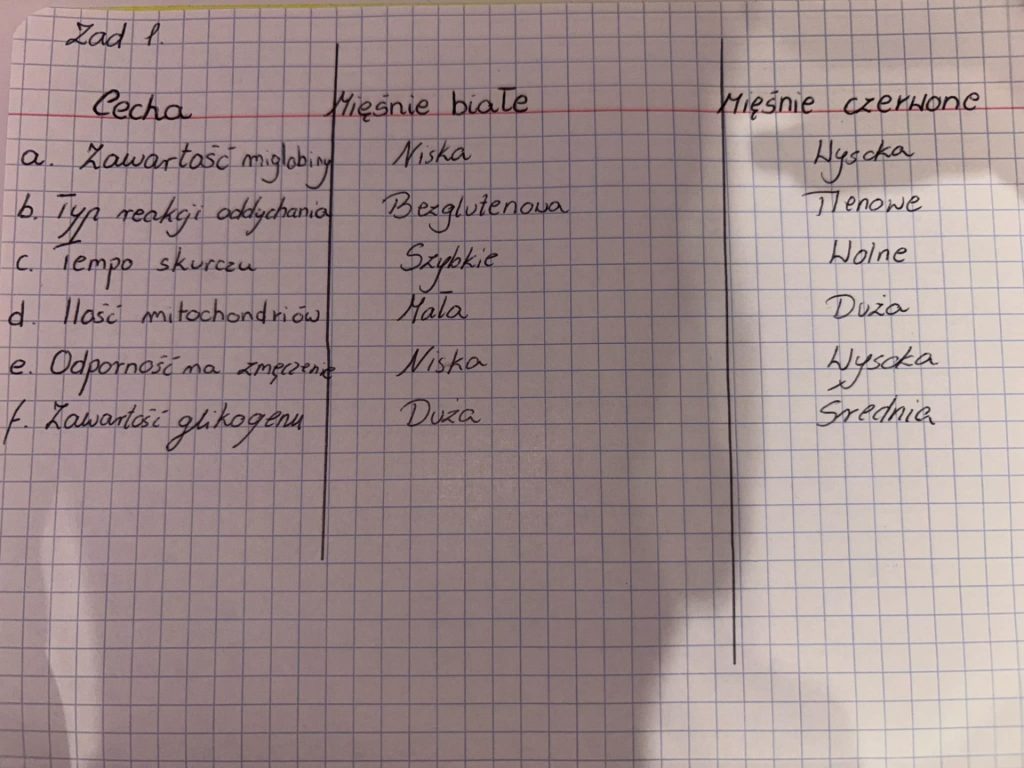 Zad 1.
Cecha Mięśnie białe Mięśnie czerwone
a. Zawartość miglobiny Niska Wysoka
b. Typ reakcji oddychania Bezglutenowa Tlenowe
c. Tempo skurczu Szybkie Wolne
d. Ilość mitochondriów Mała Duża
e. Odporność na zmęczenie Niska Wysoka
f. Zawartość glikogenu Duża Średnia